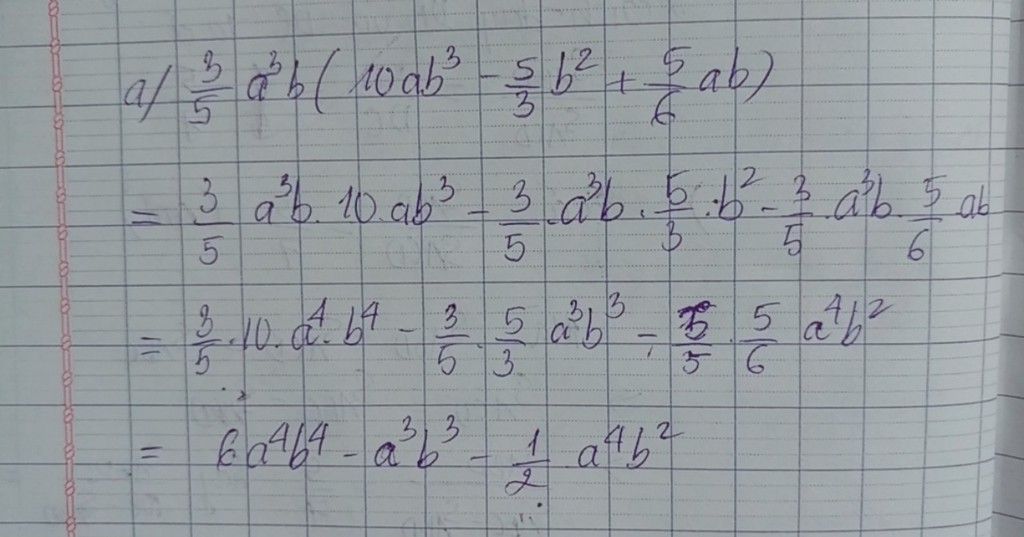 a) 3/5 a³b ( 10ab³ - 5/3 b² + 5/6 ab)
= 3/5 a³b . 10 . ab³ - 3/5 . a³b . 5/3 . b² - 3/5 . a³b . 5/6 ab
= 3/5 . 10 . a⁴ . b⁴ - 3/5 . 5/3 a³b³ - 3/5 . 5/6 a⁴b²
= 6a⁴b⁴ - a³b³ - 1/2 a⁴b²